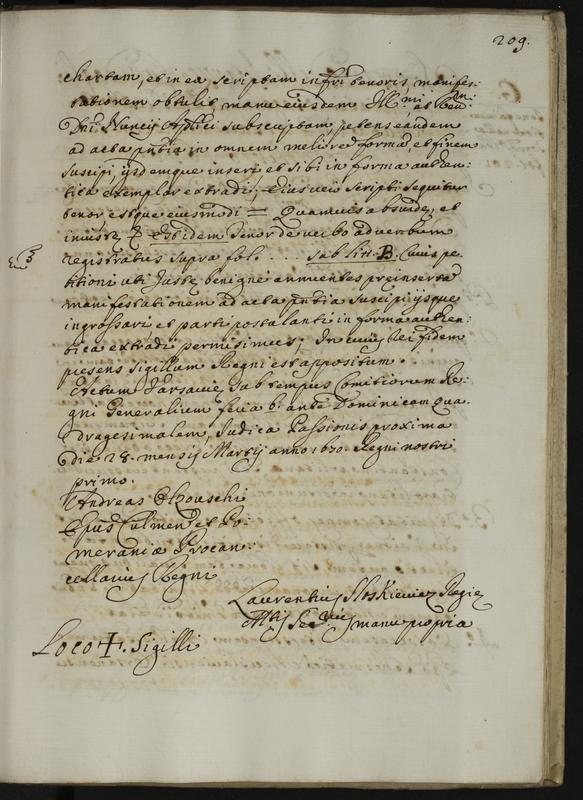 209.
chartam, et in ea scriptam infri tenoris, manifes:
tationem obtulit, manu eiusdem Illmi et Rmi
Dni Nuncij Aplici subscriptam, petens eandem
ad acta pntia in omnem meliorē formā, et finem
suscipi, ijsdemque inseri et sibi in forma authen:
tica exemplar extradi; Cuius veri scripti sequitur
tenor estque eiusmodi = Quamuis absurdę, et
iniustę Est idem tenor de verbo ad verbum
registratus supra fol: .... sub lit: B. Cuius pe
titioni uti Justę benignè annuentes preinsertā
manifestationem ad acta pntia suscipi ijsque
ingrossari et parti postulanti in forma authen:
tica extradi permisimus; In cuius rei fidem
presens sigillum Regni est appositum.
Actum Varsavię sub tempus Comitiorum Re:
gni Generalium feria 6. ante Dominicam Qua
dragesimalem, Judica Passionis proxima
die 28. mensis Martij anno 1670. Regni nostri
primo.
Andreas Olszouski
Epūs Culmen. et Po:
meraniæ Procan:
cellarius Regni
Laurentius Regię
Mttis Secrius manu propria
Loco +. Sigilli